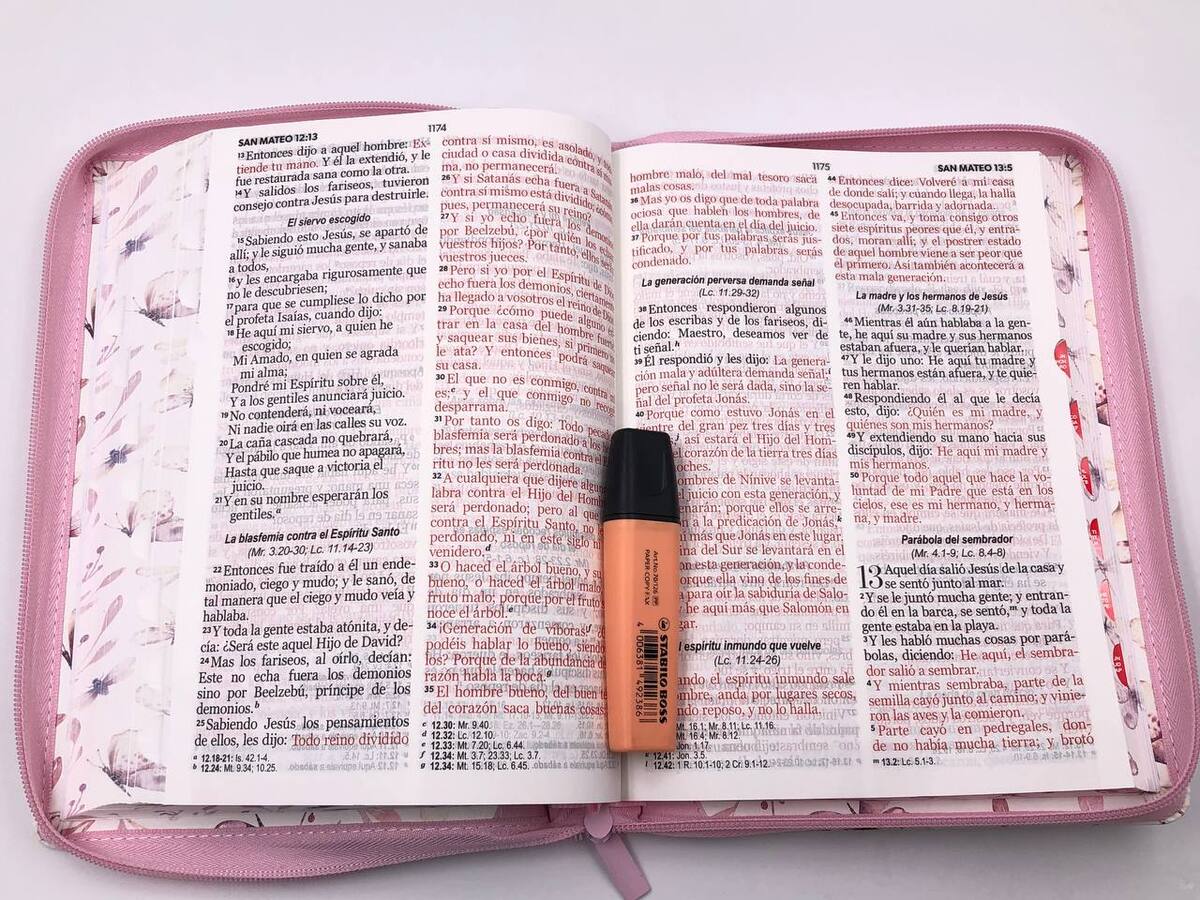 SAN MATEO 12:13
1174
13 Entonces dijo a aquel hombre: Ex-
tiende tu mano. Y él la extendió, y le
fue restaurada sana como la otra.
14 Y salidos los fariseos, tuvieron
consejo contra Jesús para destruirle.
El siervo escogido
15 Sabiendo esto Jesús, se apartó de
allí; y le siguió mucha gente, y sanaba
a todos,
16 y les encargaba rigurosamente que
no le descubriesen;
17 para que se cumpliese lo dicho por
el profeta Isaías, cuando dijo:
18 He aquí mi siervo, a quien he
escogido;
Mi Amado, en quien se agrada
mi alma;
Pondré mi Espíritu sobre él,
Y a los gentiles anunciará juicio.
19 No contenderá, ni voceará,
Ni nadie oirá en las calles su voz.
20 La caña cascada no quebrará,
Y el pábilo que humea no apagará,
Hasta que saque a victoria el
juicio.
21 Y en su nombre esperarán los
gentiles.a
La blasfemia contra el Espíritu Santo
(Mr. 3.20-30; Lc. 11.14-23)
22 Entonces fue traído a él un ende-
moniado, ciego y mudo; y le sanó, de
tal manera que el ciego y mudo veía y
hablaba.
23 Y toda la gente estaba atónita, y de-
cía: ¿Será este aquel Hijo de David?
24 Mas los fariseos, al oírlo, decían:
Este no echa fuera los demonios
sino por Beelzebú, príncipe de los
demonios.b
25 Sabiendo Jesús los pensamientos
de ellos, les dijo: Todo reino dividido
a 12.18-21: Is. 42.1-4.
b 12.24: Mt. 9.34; 10.25.
contra sí mismo, es asolado, y
ciudad o casa dividida contra sí
ma, no permanecerá.
26 Y si Satanás echa fuera a Satanás
contra sí mismo está dividido; ¿cómo
pues, permanecerá su reino?
27 Y si yo echo fuera los demonios
por Beelzebú, ¿por quién los echan
vuestros hijos? Por tanto, ellos serán
vuestros jueces.
28 Pero si yo por el Espíritu de Dios
echo fuera los demonios, ciertamente
ha llegado a vosotros el reino de Dios
29 Porque ¿cómo puede alguno en-
trar en la casa del hombre fuerte
y saquear sus bienes, si primero no
le ata? Y entonces podrá saquear
su casa.
30 El que no es conmigo, contra mí
es;c y el que conmigo no recoge
desparrama.
31 Por tanto os digo: Todo pecado
blasfemia será perdonado a los
bres; mas la blasfemia contra el
ritu no les será perdonada.
32 A cualquiera que dijere alguna
labra contra el Hijo del Hombre
será perdonado; pero al que
contra el Espíritu Santo, no
perdonado, ni en este siglo ni
venidero.d
33 O haced el árbol bueno, y su
bueno, o haced el árbol malo,
fruto malo; porque por el fruto
noce el árbol.e
34 ¡Generación de víboras!f
podéis hablar lo bueno, siendo
los? Porque de la abundancia
razón habla la boca.g
35 El hombre bueno, del buen
del corazón saca buenas cosas;
c 12.30: Mr. 9.40.
d 12.32: Lc. 12.10.
e 12.33: Mt. 7.20; Lc. 6.44.
f 12.34: Mt. 3.7; 23.33; Lc. 3.7.
g 12.34: Mt. 15.18; Lc. 6.45.
1175
SAN MATEO 13:5
hombre malo, del mal tesoro saca
malas cosas.
36 Mas yo os digo que de toda palabra
ociosa que hablen los hombres, de
ella darán cuenta en el día del juicio.
37 Porque por tus palabras serás jus-
tificado, y por tus palabras serás
condenado.
La generación perversa demanda señal
(Lc. 11.29-32)
38 Entonces respondieron algunos
de los escribas y de los fariseos, di-
ciendo: Maestro, deseamos ver de
ti señal.h
39 Él respondió y les dijo: La genera-
ción mala y adúltera demanda señal;i
pero señal no le será dada, sino la se-
ñal del profeta Jonás.
40 Porque como estuvo Jonás en el
vientre del gran pez tres días y tres
j así estará el Hijo del Hom-
corazón de la tierra tres días
oches.
ombres de Nínive se levanta-
l juicio con esta generación, y
rán; porque ellos se arre-
a la predicación de Jonás,k
más que Jonás en este lugar.
ina del Sur se levantará en el
esta generación, y la conde-
orque ella vino de los fines de
para oír la sabiduría de Salo-
he aquí más que Salomón en
gar.
l espíritu inmundo que vuelve
(Lc. 11.24-26)
ando el espíritu inmundo sale
mbre, anda por lugares secos,
ndo reposo, y no lo halla.
Mt. 16.1; Mr. 8.11; Lc. 11.16.
Mt. 16.4; Mr. 8.12.
Jon. 1.17.
12.41: Jon. 3.5.
l 12.42: 1 R. 10.1-10; 2 Cr. 9.1-12.
44 Entonces dice: Volveré a mi casa
de donde salí; y cuando llega, la halla
desocupada, barrida y adornada.
45 Entonces va, y toma consigo otros
siete espíritus peores que él, y entra-
dos, moran allí; y el postrer estado
de aquel hombre viene a ser peor que
el primero. Así también acontecerá a
esta mala generación.
La madre y los hermanos de Jesús
(Mr. 3.31-35; Lc. 8.19-21)
46 Mientras él aún hablaba a la gen-
te, he aquí su madre y sus hermanos
estaban afuera, y le querían hablar.
47 Y le dijo uno: He aquí tu madre y
tus hermanos están afuera, y te quie-
ren hablar.
48 Respondiendo él al que le decía
esto, dijo: ¿Quién es mi madre, y
quiénes son mis hermanos?
49 Y extendiendo su mano hacia sus
discípulos, dijo: He aquí mi madre y
mis hermanos.
50 Porque todo aquel que hace la vo-
luntad de mi Padre que está en los
cielos, ese es mi hermano, y herma-
na, y madre.
Parábola del sembrador
(Mr. 4.1-9; Lc. 8.4-8)
13 Aquel día salió Jesús de la casa y
se sentó junto al mar.
2 Y se le juntó mucha gente; y entran-
do él en la barca, se sentó,m y toda la
gente estaba en la playa.
3 Y les habló muchas cosas por pará-
bolas, diciendo: He aquí, el sembra-
dor salió a sembrar.
4 Y mientras sembraba, parte de la
semilla cayó junto al camino; y vinie-
ron las aves y la comieron.
5 Parte cayó en pedregales, don-
de no había mucha tierra; y brotó
m 13.2: Lc. 5.1-3.
STABILO BOSS
Art.No. 70/126
PAPER COPY FAX
4 006381 492386